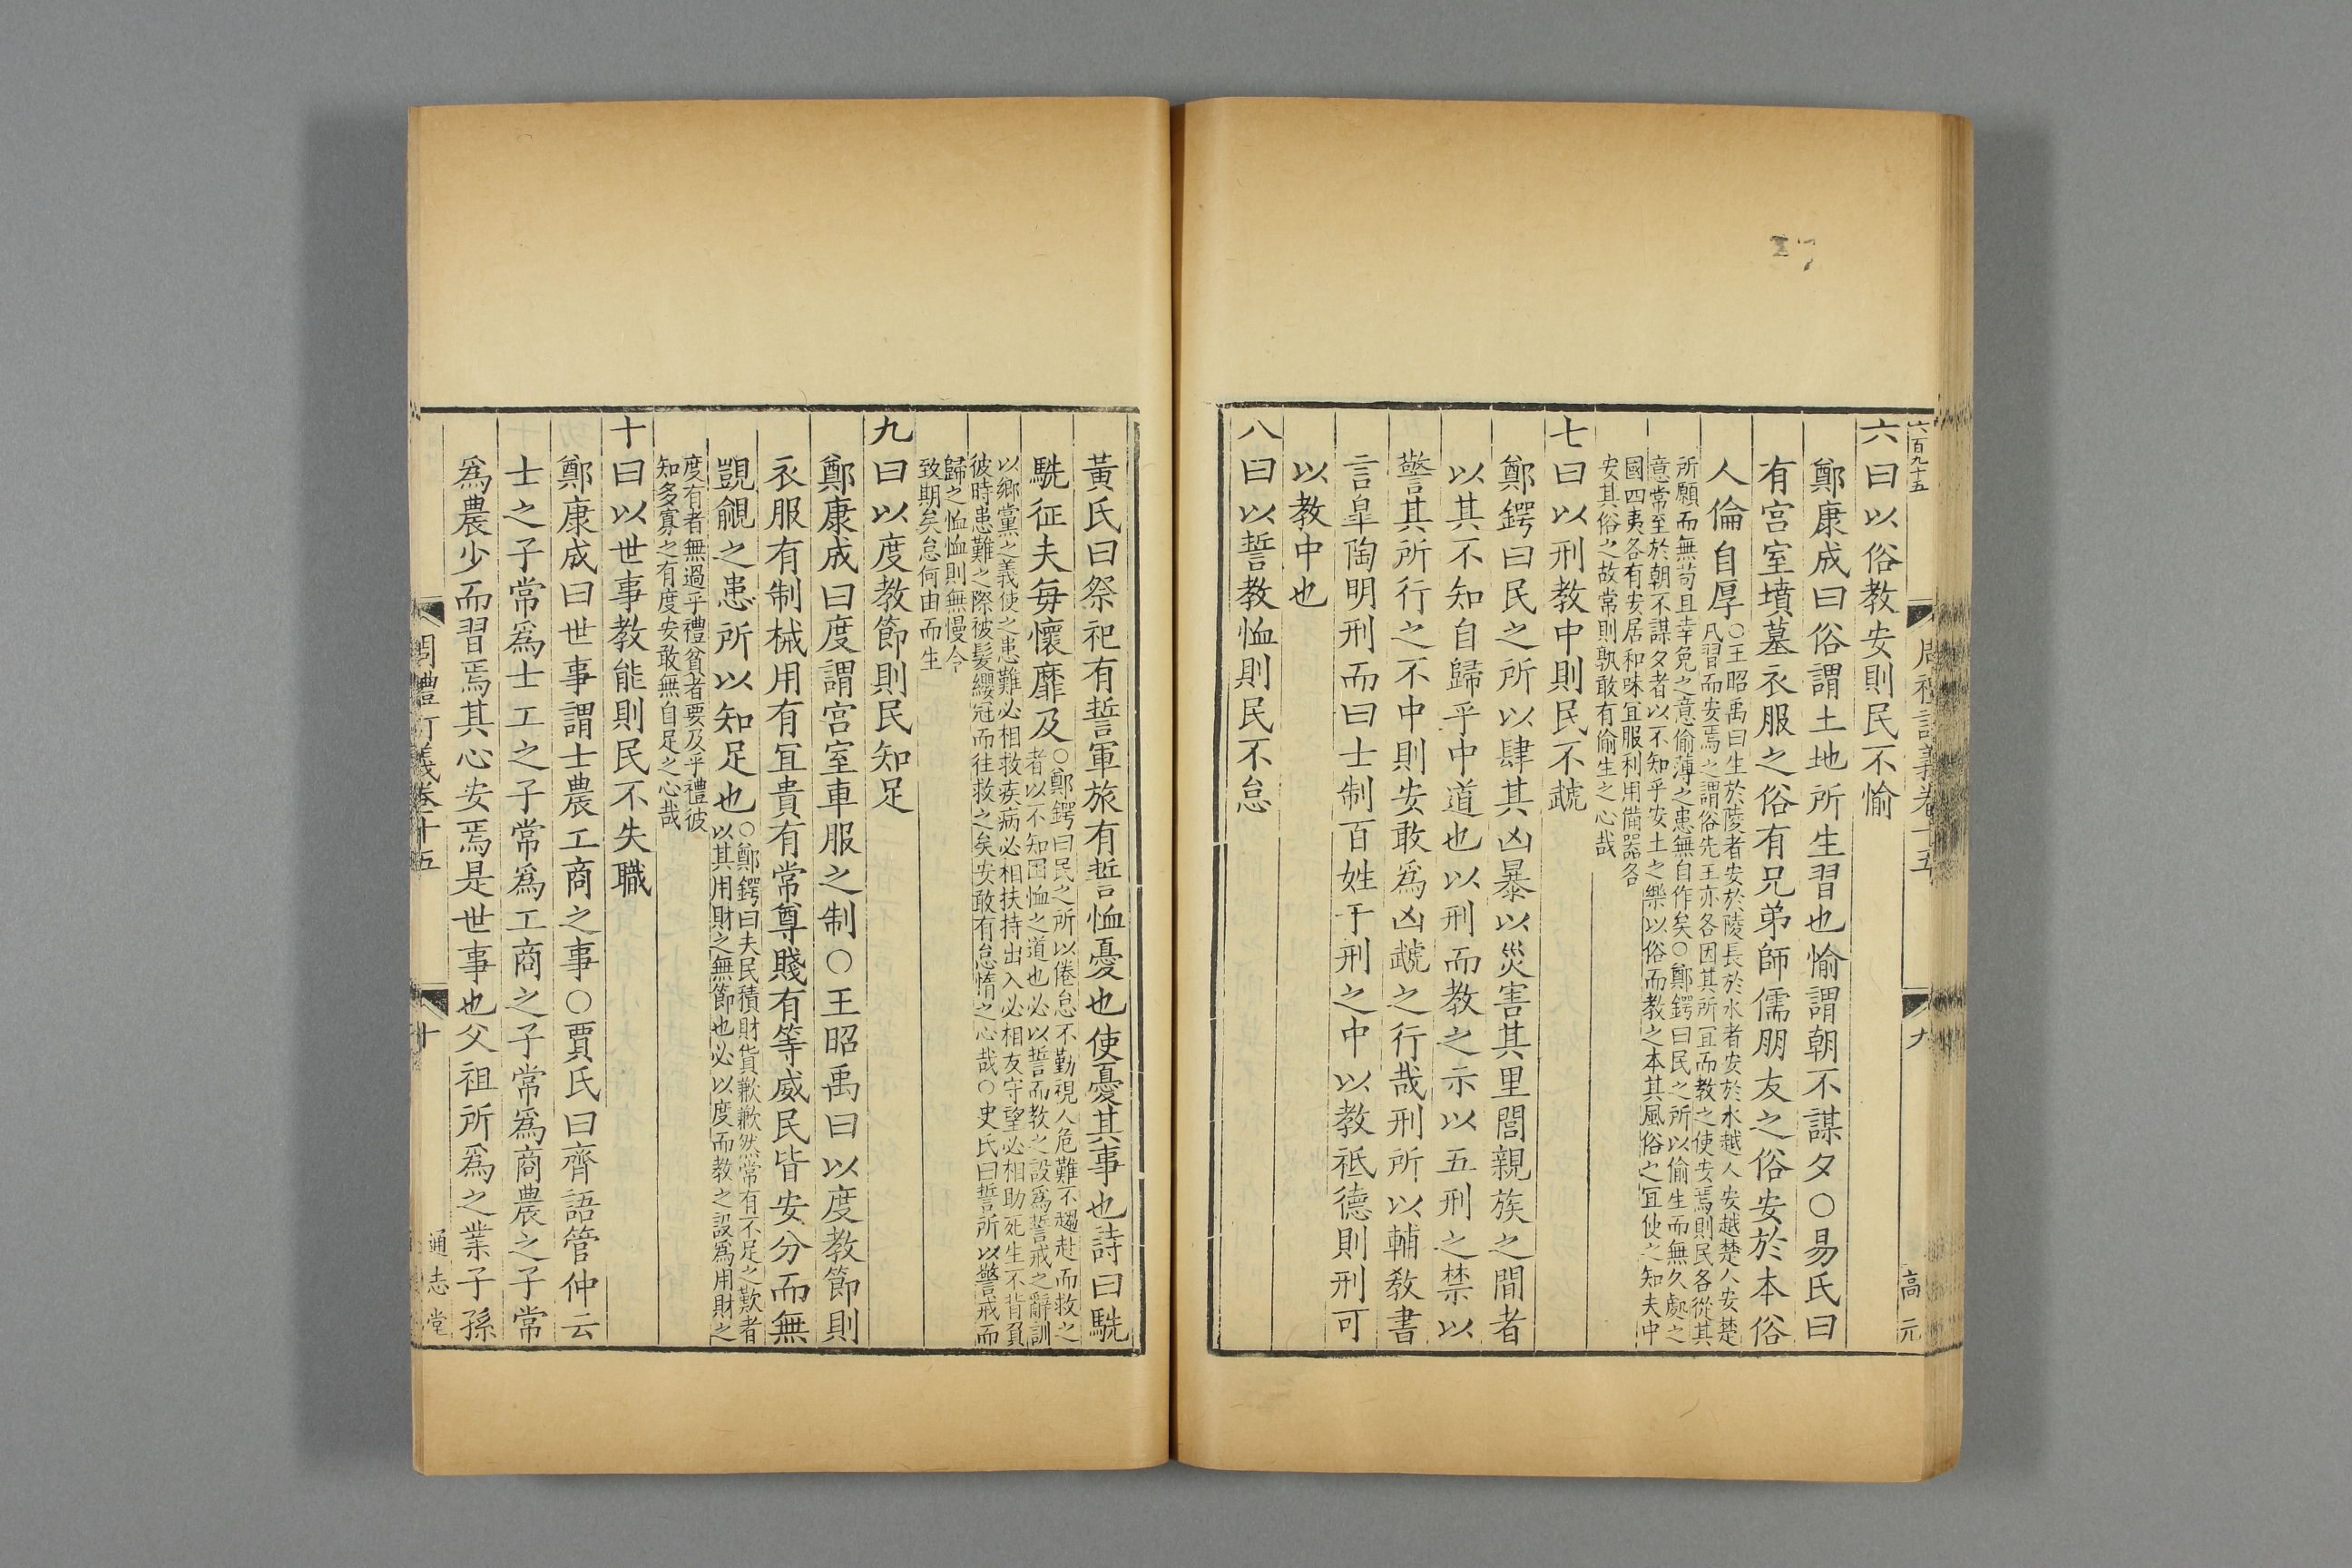 六百九十五
周禮訂義卷十五
九
高元
六曰以俗教安則民不愉
鄭康成曰俗謂土地所生習也愉謂朝不謀夕○易氏曰
有宫室墳墓衣服之俗有兄弟師儒朋友之俗安於本俗
人倫自厚○王昭禹曰生於陵者安於陵長於水者安於水越人安越楚人安楚
凡習而安焉之謂俗先王亦各因其所冝而教之使安焉則民各從其
所願而無苟且幸免之意偷薄之患無自作矣○鄭鍔曰民之所以偷生而無久處之
意常至於朝不謀夕者以不知乎安土之樂以俗而教之本其風俗之冝使之知夫中
國四夷各有安居和味冝服利用備器各
安其俗之故常則孰敢有偷生之心哉
七曰以刑教中則民不虣
鄭鍔曰民之所以肆其凶暴以災害其里閭親族之間者
以其不知自歸乎中道也以刑而教之示以五刑之禁以
警其所行之不中則安敢爲凶虣之行哉刑所以輔教書
言臯陶明刑而曰士制百姓于刑之中以教祗德則刑可
以教中也
八曰以誓教恤則民不怠
黃氏曰祭祀有誓軍旅有誓恤憂也使憂其事也詩曰駪
駪征夫每懷靡及○鄭鍔曰民之所以倦怠不勤視人危難不趨赴而救之
者以不知囯恤之道也必以誓而教之設爲誓戒之辭訓
以鄉黨之義使之患難必相救疾病必相扶持出入必相友守望必相助死生不背負
彼時患難之際被髮纓冠而往救之矣安敢有怠惰之心哉○史氏曰誓所以警戒而
歸之恤恤則無慢令
致期矣怠何由而生
九曰以度教節則民知足
鄭康成曰度謂宫室車服之制○王昭禹曰以度教節則
衣服有制械用有冝貴有常尊賤有等威民皆安分而無
覬覦之患所以知足也○鄭鍔曰夫民積財貨歉歉然常有不足之歎者
以其用財之無節也必以度而教之設爲用財之
度有者無過乎禮貧者要及乎禮彼
知多寡之有度安敢無自足之心哉
十曰以世事教能則民不失職
鄭康成曰世事謂士農工商之事○賈氏曰齊語管仲云
士之子常爲士工之子常爲工商之子常爲商農之子常
爲農少而習焉其心安焉是世事也父祖所爲之業子孫
周禮訂義卷十五
十
通志堂